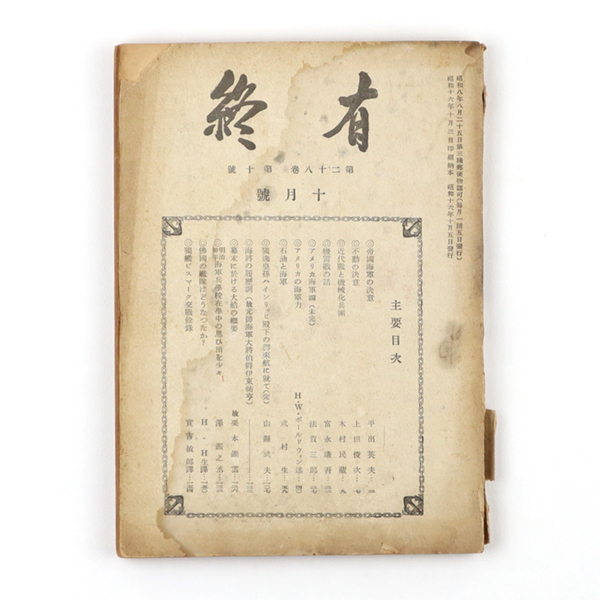 昭和八年八月二十五日第三種郵便物認可(毎月一回五日發行)
昭和十六年十月三日印刷納本 昭和十六年十月五日發行
有終
第二十八卷 第十號
十月號
主要目次
◎帝國海軍の決意 平出英夫
◎不動の決意 上田俊次
◎近代戰と機械化兵團 木村民藏
◎機雷戰の話 富永謙吾
◎アメリカ海軍論(未完)
◎アメリカの海軍力 H・W・ボールドウィン
◎石油と海軍 武村生
ハインリッヒ殿下の御來航に就て(完) 山縣武夫
(故元帥海軍大將伯爵伊東祐亨)
◎幕末に於ける大船の概要 故 栗本鋤雲
明治初年海軍兵學校在學中の思ひ出を少々 澤鑑之丞
艦隊はどうなつたか? H・H生譯
ビスマーク交戰餘錄 實吉敏郎譯